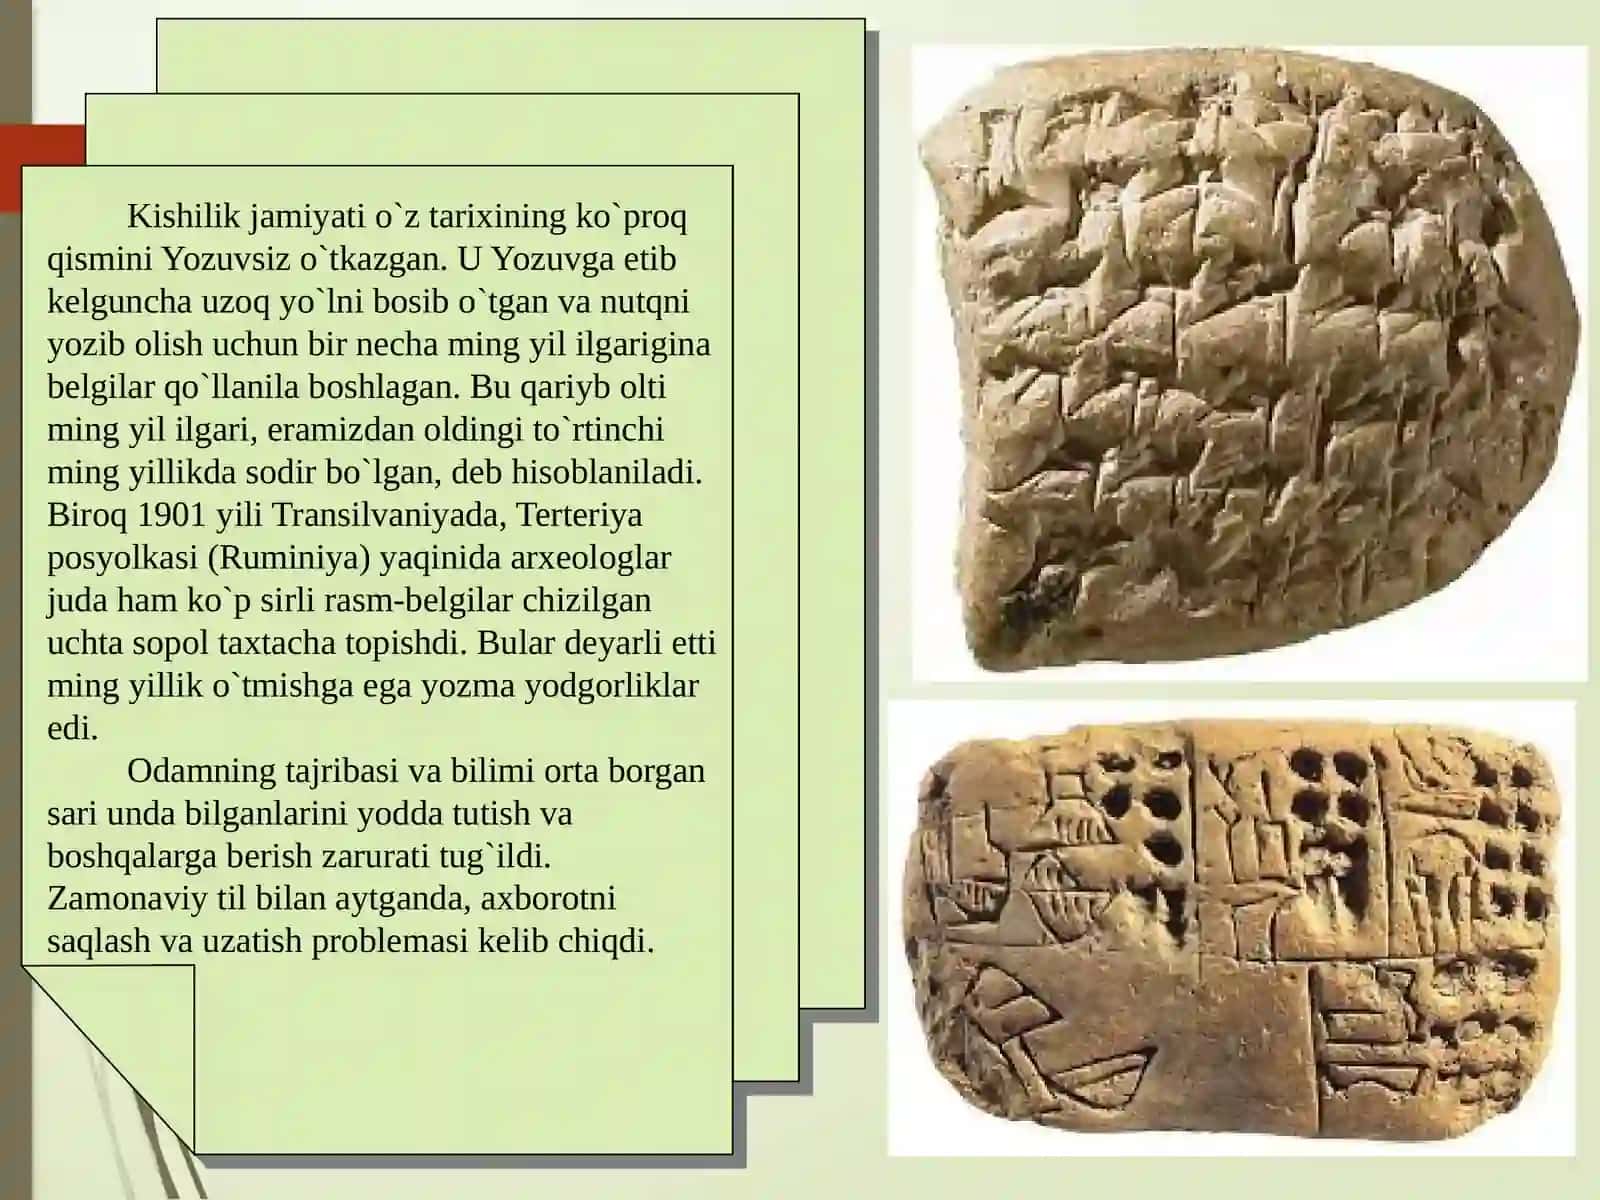 Kishilik jamiyati o`z tarixining ko`proq
qismini Yozuvsiz o`tkazgan. U Yozuvga etib
kelguncha uzoq yo`lni bosib o`tgan va nutqni
yozib olish uchun bir necha ming yil ilgarigina
belgilar qo`llanila boshlagan. Bu qariyb olti
ming yil ilgari, eramizdan oldingi to`rtinchi
ming yillikda sodir bo`lgan, deb hisoblaniladi.
Biroq 1901 yili Transilvaniyada, Terteriya
posyolkasi (Ruminiya) yaqinida arxeologlar
juda ham ko`p sirli rasm-belgilar chizilgan
uchta sopol taxtacha topishdi. Bular deyarli etti
ming yillik o`tmishga ega yozma yodgorliklar
edi.
Odamning tajribasi va bilimi orta borgan
sari unda bilganlarini yodda tutish va
boshqalarga berish zarurati tug`ildi.
Zamonaviy til bilan aytganda, axborotni
saqlash va uzatish problemasi kelib chiqdi.